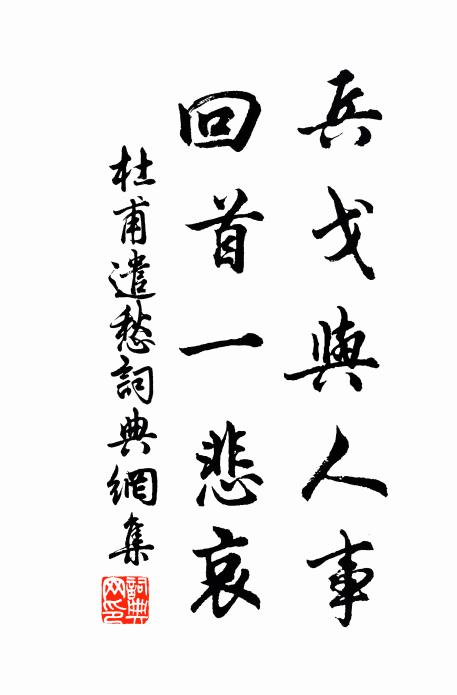 兵戈與人事
回首一悲哀
杜甫遣愁詞典網集
詞典網印